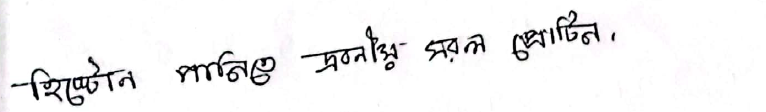 হিস্টোন পানিতে দ্রবনীয় সরল প্রোটিন.